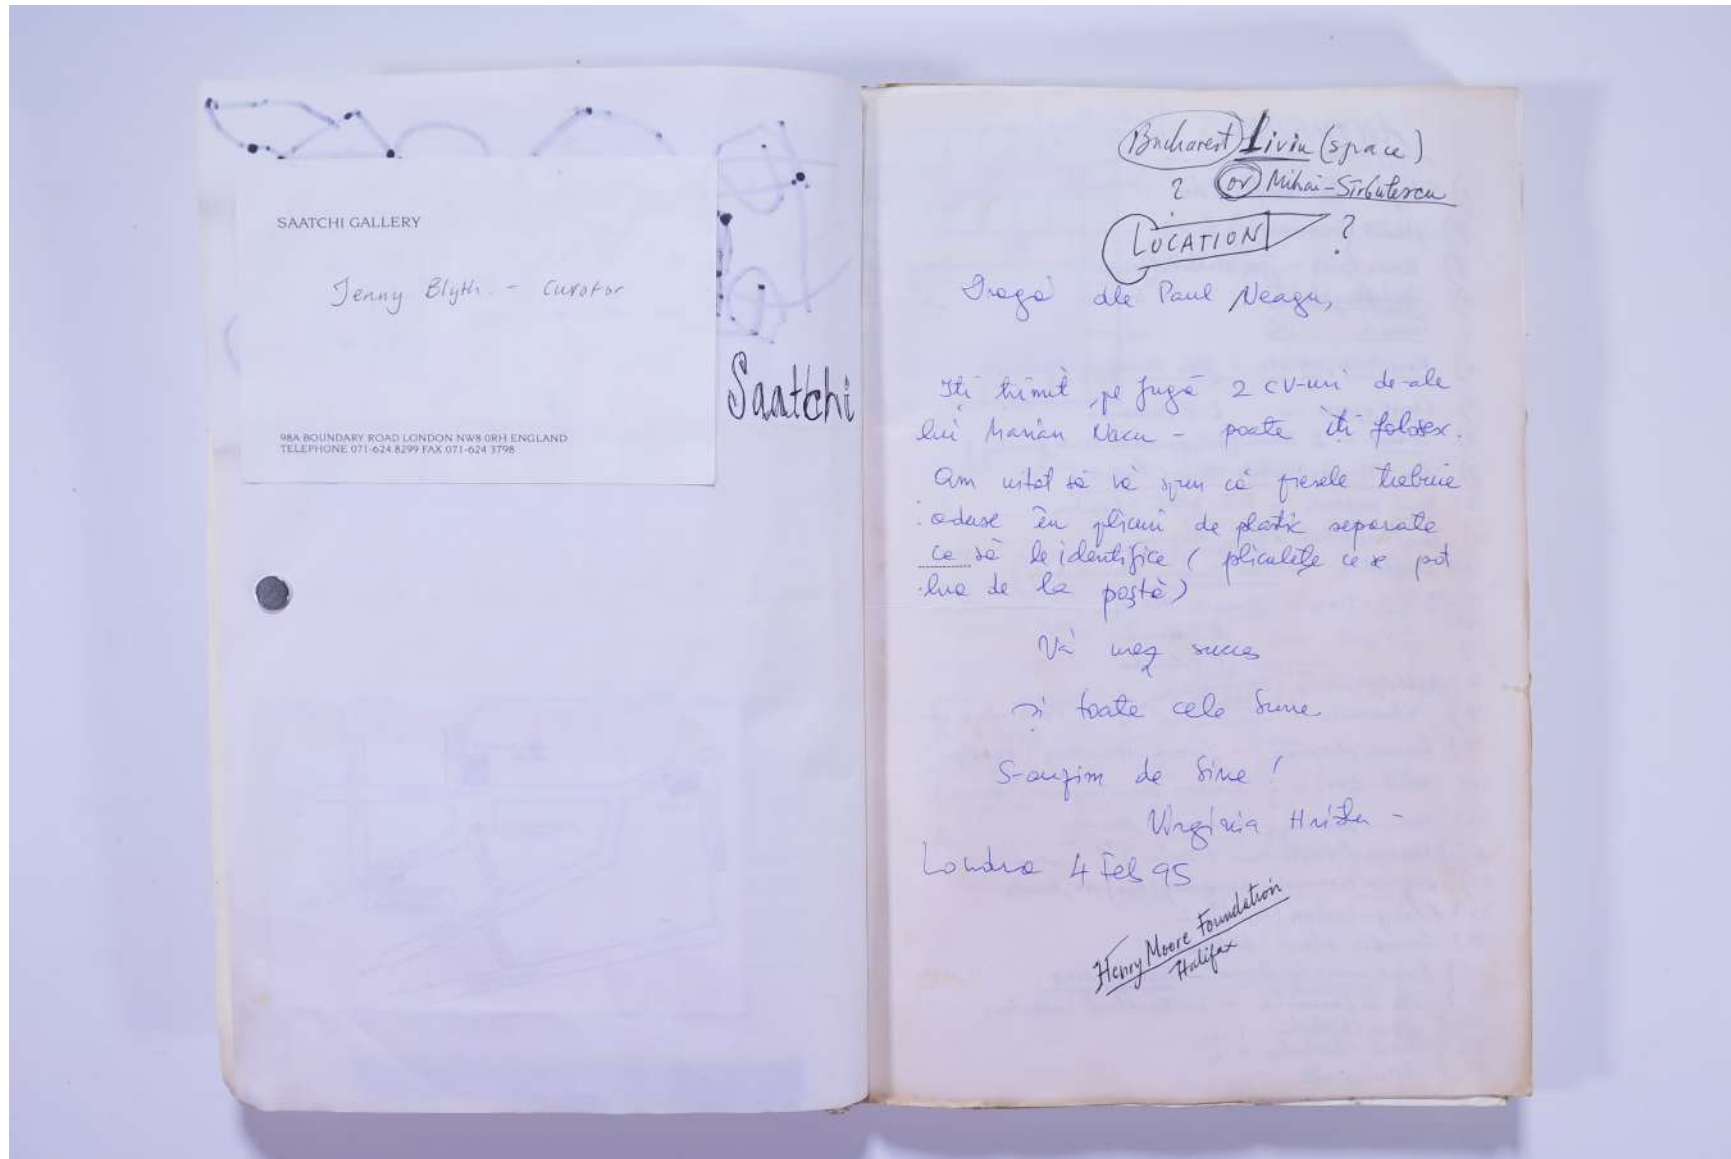 SAATCHI GALLERY
Jenny Blyth. - Curator
98A BOUNDARY ROAD LONDON NW8 0RH ENGLAND
TELEPHONE 071-624 8299 FAX 071-624 3798
Saatchi
Bucharest Liviu (space)
? or Mihai-Sîrbulescu
LOCATION ?
Dragă dle Paul Neagu,
Iți trimit, pe fugă 2 CV-uri de-ale
lui Marian - poate îți folosesc.
Am uitat să vă spun că piesele trebuie
aduse în plicuri de plastic separate
ca să le identifice ( pliculețe ce se pot
lua de la poștă)
Vă urez succes
și toate cele bune
S-auzim de bine!
Virginia -
Londra 4 Feb 95
Henry Moore Foundation
Halifax